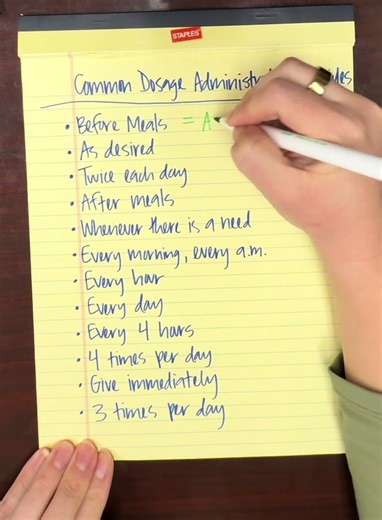 STAPLES
Common Dosage Administra
• Before Meals = A
• As desired
• Twice each day
• After meals
• Whenever there is a need
• Every morning, every a.m.
• Every hour
• Every day
• Every 4 hours
• 4 times per day
• Give immediately
• 3 times per day